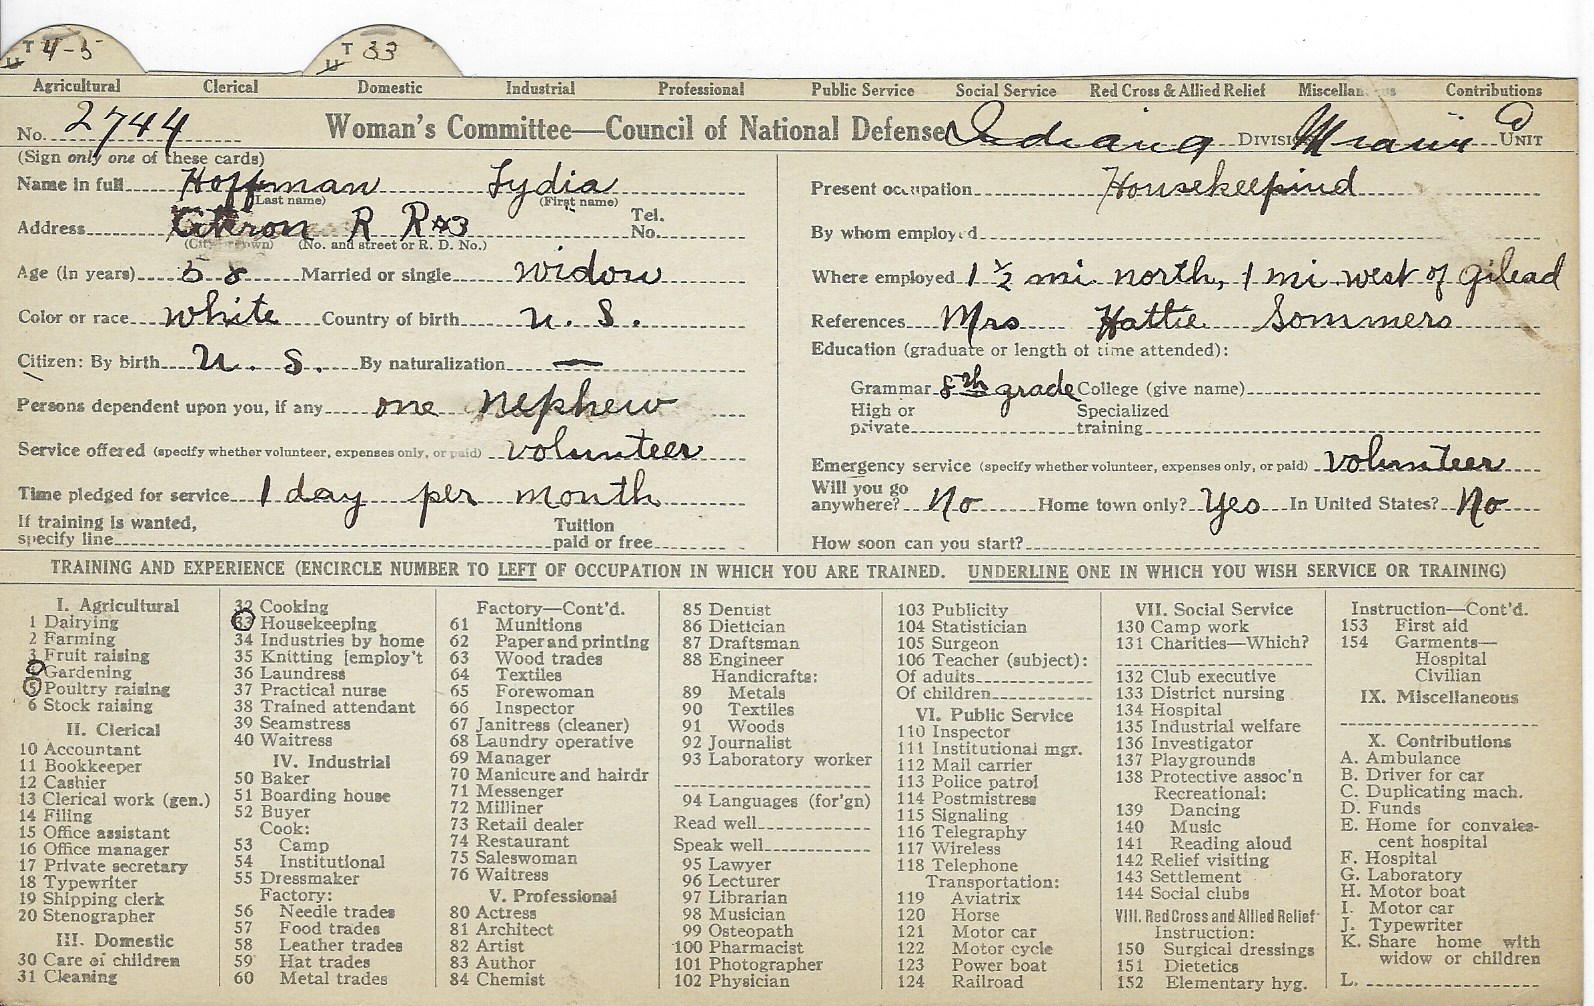 T 4-5 T 33
U U
Agricultural Clerical Domestic Industrial Professional Public Service Social Service Red Cross & Allied Relief Miscellaneous Contributions
No. 2744 Woman's Committee—Council of National Defense Indiana DIVISION Miami UNIT
(Sign only one of these cards)
Name in full Hoffman Lydia
(Last name) (First name)
Address Akron R R#3 Tel. No.
(City or town) (No. and street or R. D. No.)
Age (in years) 58 Married or single widow
Color or race white Country of birth U. S.
Citizen: By birth U. S. By naturalization —
Persons dependent upon you, if any one nephew
Service offered (specify whether volunteer, expenses only, or paid) volunteer
Time pledged for service 1 day per month
If training is wanted, specify line Tuition paid or free
Present occupation Housekeepind
By whom employed
Where employed 1 ½ mi north, 1 mi west of Gilead
References Mrs Hattie Sommers
Education (graduate or length of time attended):
Grammar 8th grade College (give name)
High or private Specialized training
Emergency service (specify whether volunteer, expenses only, or paid) volunteer
Will you go anywhere? No Home town only? Yes In United States? No
How soon can you start?
TRAINING AND EXPERIENCE (ENCIRCLE NUMBER TO LEFT OF OCCUPATION IN WHICH YOU ARE TRAINED. UNDERLINE ONE IN WHICH YOU WISH SERVICE OR TRAINING)
I. Agricultural
1 Dairying
2 Farming
3 Fruit raising
4 Gardening
5 Poultry raising
6 Stock raising
II. Clerical
10 Accountant
11 Bookkeeper
12 Cashier
13 Clerical work (gen.)
14 Filing
15 Office assistant
16 Office manager
17 Private secretary
18 Typewriter
19 Shipping clerk
20 Stenographer
III. Domestic
30 Care of children
31 Cleaning
32 Cooking
33 Housekeeping
34 Industries by home
35 Knitting [employ't
36 Laundress
37 Practical nurse
38 Trained attendant
39 Seamstress
40 Waitress
IV. Industrial
50 Baker
51 Boarding house
52 Buyer
Cook:
53 Camp
54 Institutional
55 Dressmaker
Factory:
56 Needle trades
57 Food trades
58 Leather trades
59 Hat trades
60 Metal trades
Factory—Cont'd.
61 Munitions
62 Paper and printing
63 Wood trades
64 Textiles
65 Forewoman
66 Inspector
67 Janitress (cleaner)
68 Laundry operative
69 Manager
70 Manicure and hairdr
71 Messenger
72 Milliner
73 Retail dealer
74 Restaurant
75 Saleswoman
76 Waitress
V. Professional
80 Actress
81 Architect
82 Artist
83 Author
84 Chemist
85 Dentist
86 Dietician
87 Draftsman
88 Engineer
Handicrafts:
89 Metals
90 Textiles
91 Woods
92 Journalist
93 Laboratory worker
94 Languages (for'gn)
Read well
Speak well
95 Lawyer
96 Lecturer
97 Librarian
98 Musician
99 Osteopath
100 Pharmacist
101 Photographer
102 Physician
103 Publicity
104 Statistician
105 Surgeon
106 Teacher (subject):
Of adults
Of children
VI. Public Service
110 Inspector
111 Institutional mgr.
112 Mail carrier
113 Police patrol
114 Postmistress
115 Signaling
116 Telegraphy
117 Wireless
118 Telephone
Transportation:
119 Aviatrix
120 Horse
121 Motor car
122 Motor cycle
123 Power boat
124 Railroad
VII. Social Service
130 Camp work
131 Charities—Which?
132 Club executive
133 District nursing
134 Hospital
135 Industrial welfare
136 Investigator
137 Playgrounds
138 Protective assoc'n
Recreational:
139 Dancing
140 Music
141 Reading aloud
142 Relief visiting
143 Settlement
144 Social clubs
VIII. Red Cross and Allied Relief
Instruction:
150 Surgical dressings
151 Dietetics
152 Elementary hyg.
Instruction—Cont'd.
153 First aid
154 Garments—
Hospital
Civilian
IX. Miscellaneous
X. Contributions
A. Ambulance
B. Driver for car
C. Duplicating mach.
D. Funds
E. Home for convales-
cent hospital
F. Hospital
G. Laboratory
H. Motor boat
I. Motor car
J. Typewriter
K. Share home with
widow or children
L.